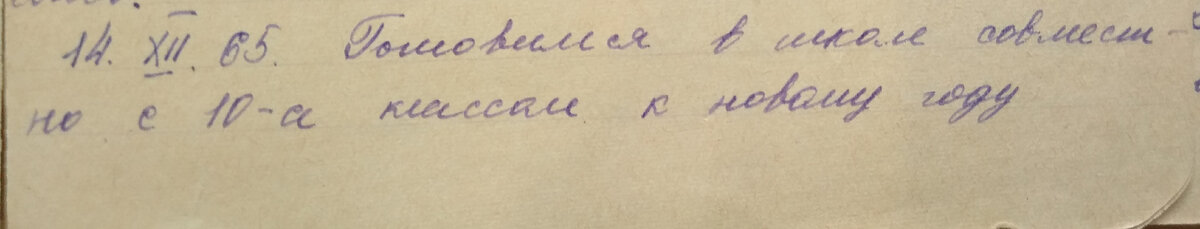 14. XII. 65. Готовимся в школе совмест-
но с 10-а классом к новому году